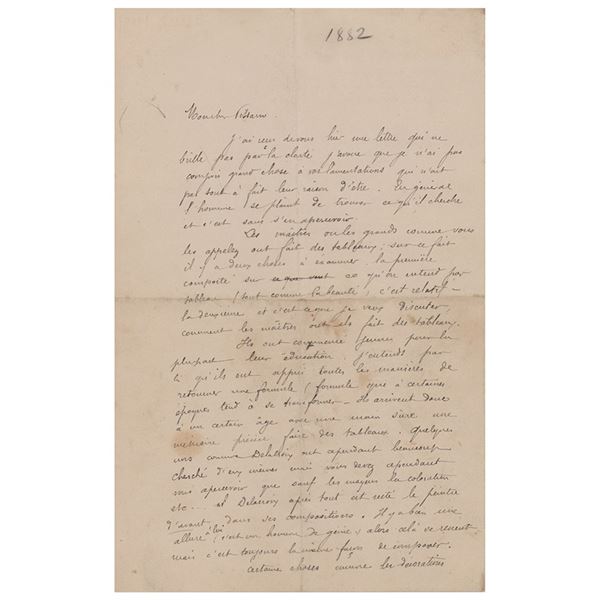 1882
Mon cher Pissarro.
J'ai reçu de vous hier une lettre qui ne
brille pas par la clarté j'avoue que je n'ai pas
compris grand chose à vos lamentations qui n'ont
pas tout à fait leur raison d'être. En général
l'homme se plaint de trouver ce qu'il cherche
et c'est sans s'en apercevoir.
Les maîtres ou les grands comme vous
les appelez ont fait des tableaux; sur ce fait
il y a deux choses à examiner. la première
comporte sur ce que veut ce qu'on entend par
tableau (tout comme la beauté) c'est relatif-
la deuxieme et c'est ce que je veux discuter,
comment les maîtres ont ils fait des tableaux.
Ils ont commencé jeunes pour la
plupart leur éducation, j'entends par
là qu'ils ont appris toutes les manières de
retourner une formule (formule qui à certaines
époques tend à se transformer - Ils arrivent donc
à un certain âge avec une main sûre une
mémoire précise faire des tableaux. Quelques
uns comme Delacroix ont cependant beaucoup
cherché d'eux mêmes mais vous devez cependant
vous apercevoir que sauf les moyens la coloration
etc... Delacroix après tout est resté le peintre
d'avant, dans ses compositions. Il y a bien une
allure à lui (c'est un homme de génie) alors cela se ressent
mais c'est toujours la même façon de composer.
Certaines choses comme les décorations